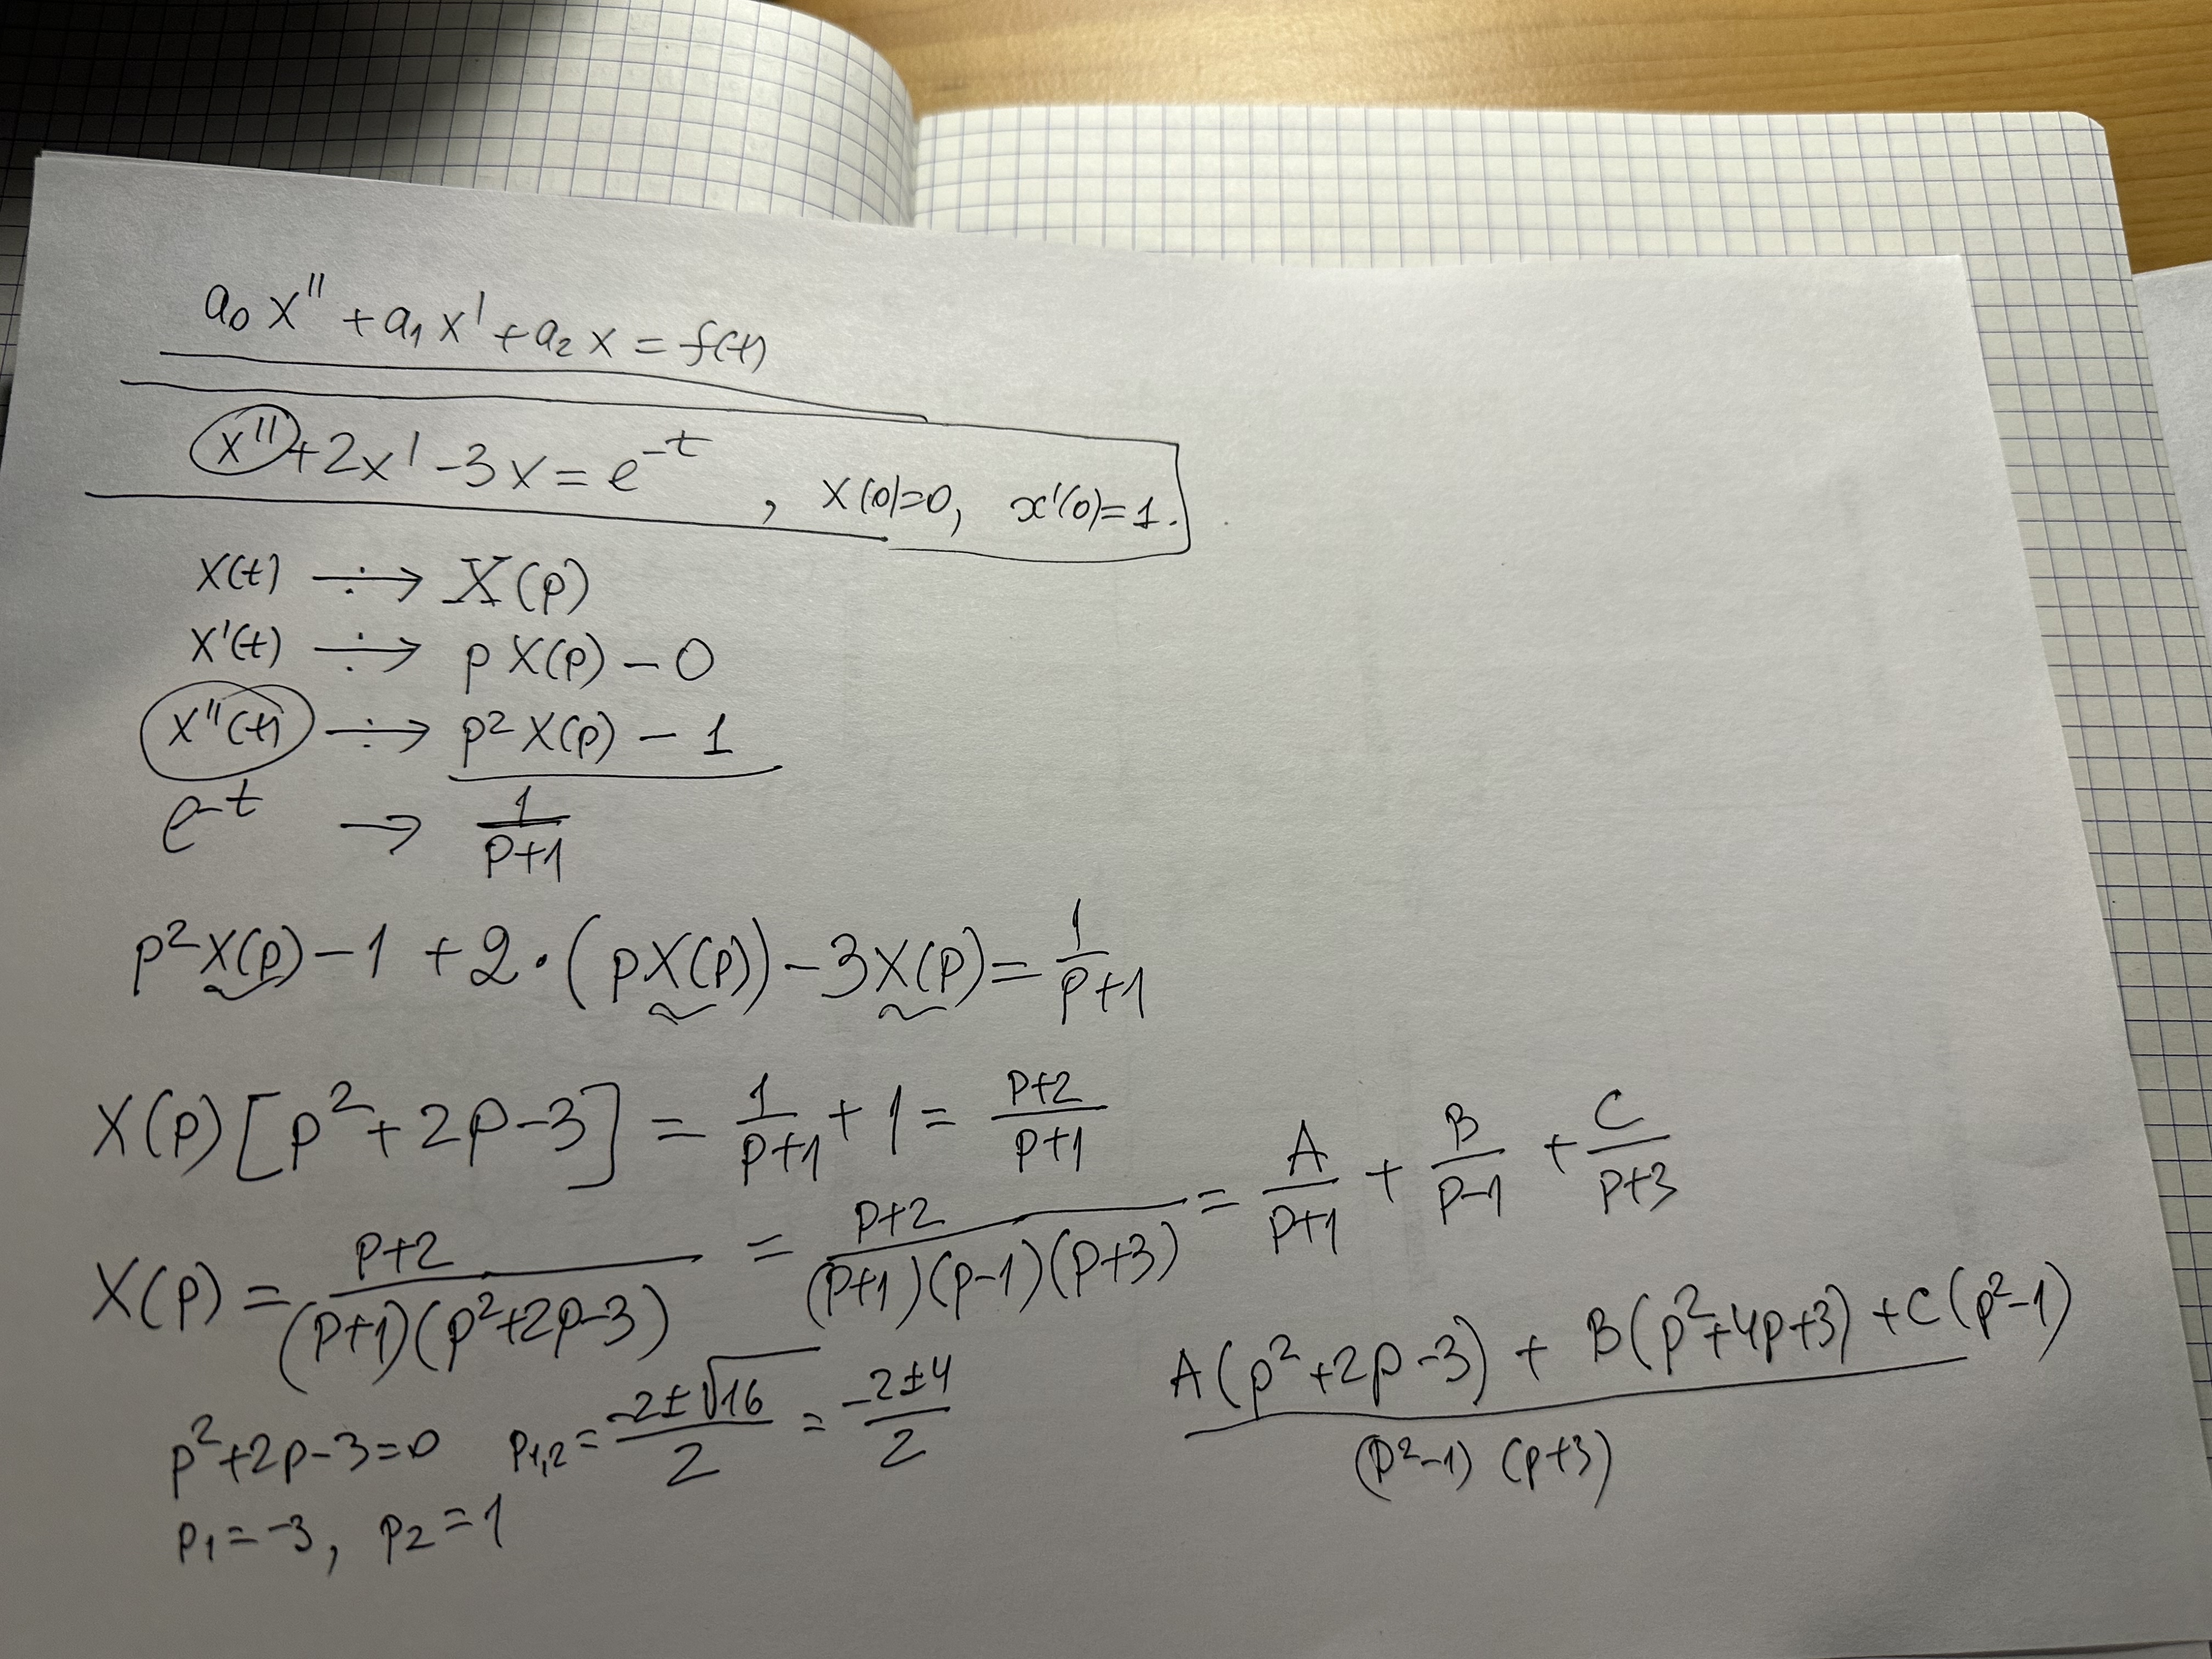 a₀x'' + a₁x' + a₂x = f(t)
x'' + 2x' - 3x = e⁻ᵗ , x(0)=0, x'(0)=1.
x(t) ÷→ X(p)
x'(t) ÷→ pX(p) - 0
x''(t) ÷→ p²X(p) - 1
e⁻ᵗ → 1/(p+1)
p²X(p) - 1 + 2·(pX(p)) - 3X(p) = 1/(p+1)
X(p)[p² + 2p - 3] = 1/(p+1) + 1 = (p+2)/(p+1)
X(p) = (p+2)/((p+1)(p²+2p-3)) = (p+2)/((p+1)(p-1)(p+3)) = A/(p+1) + B/(p-1) + C/(p+3)
p²+2p-3=0 p₁,₂ = (-2±√16)/2 = (-2±4)/2
p₁=-3, p₂=1
(A(p²+2p-3) + B(p²+4p+3) + C(p²-1))/((p²-1)(p+3))